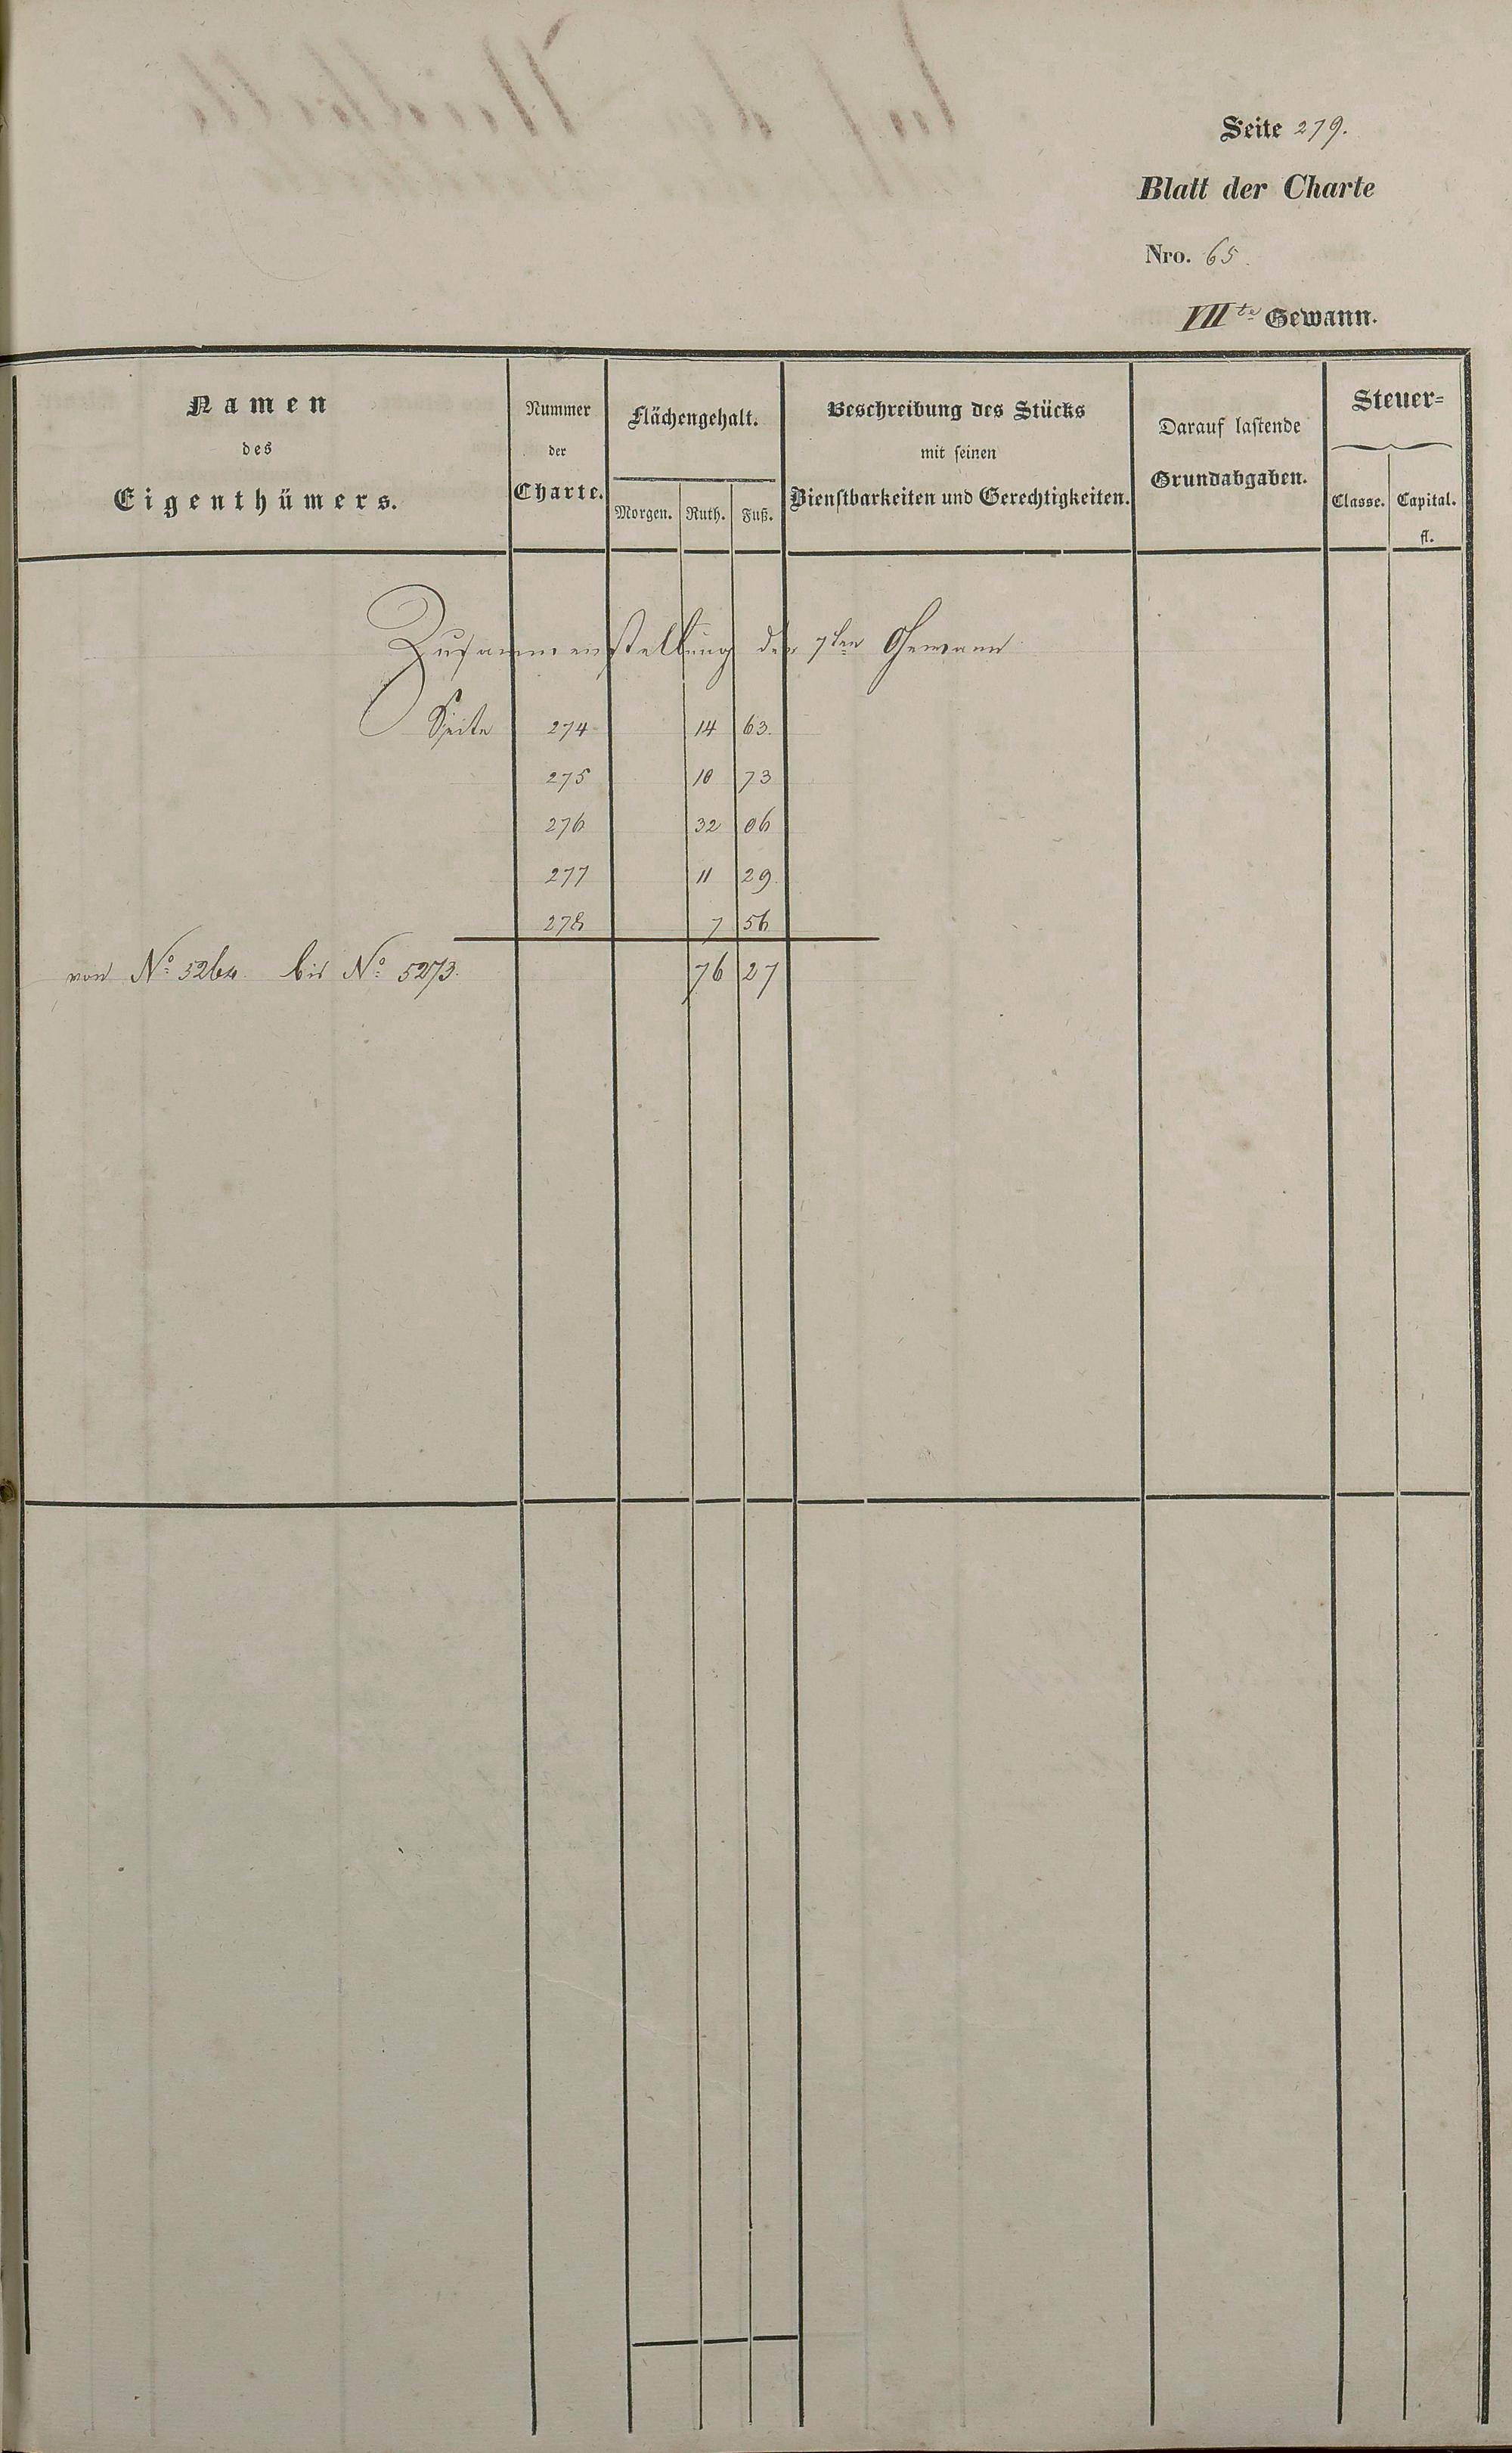 Seite 279.
Blatt der Charte
Nro. 65.
VIIte Gewann.
Namen
des
Eigenthümers.
Nummer
der
Charte.
Flächengehalt.
Morgen. Ruth. Fuß.
Beschreibung des Stücks
mit seinen
Dienstbarkeiten und Gerechtigkeiten.
Darauf lastende
Grundabgaben.
Steuer=
Classe. Capital.
fl.
Zusammenstellung der 7ten Gewann
Seite 274 14 63.
275 10 73
276 32 06
277 11 29.
278 7 56
von No. 5264. bis No. 5273. 76 27